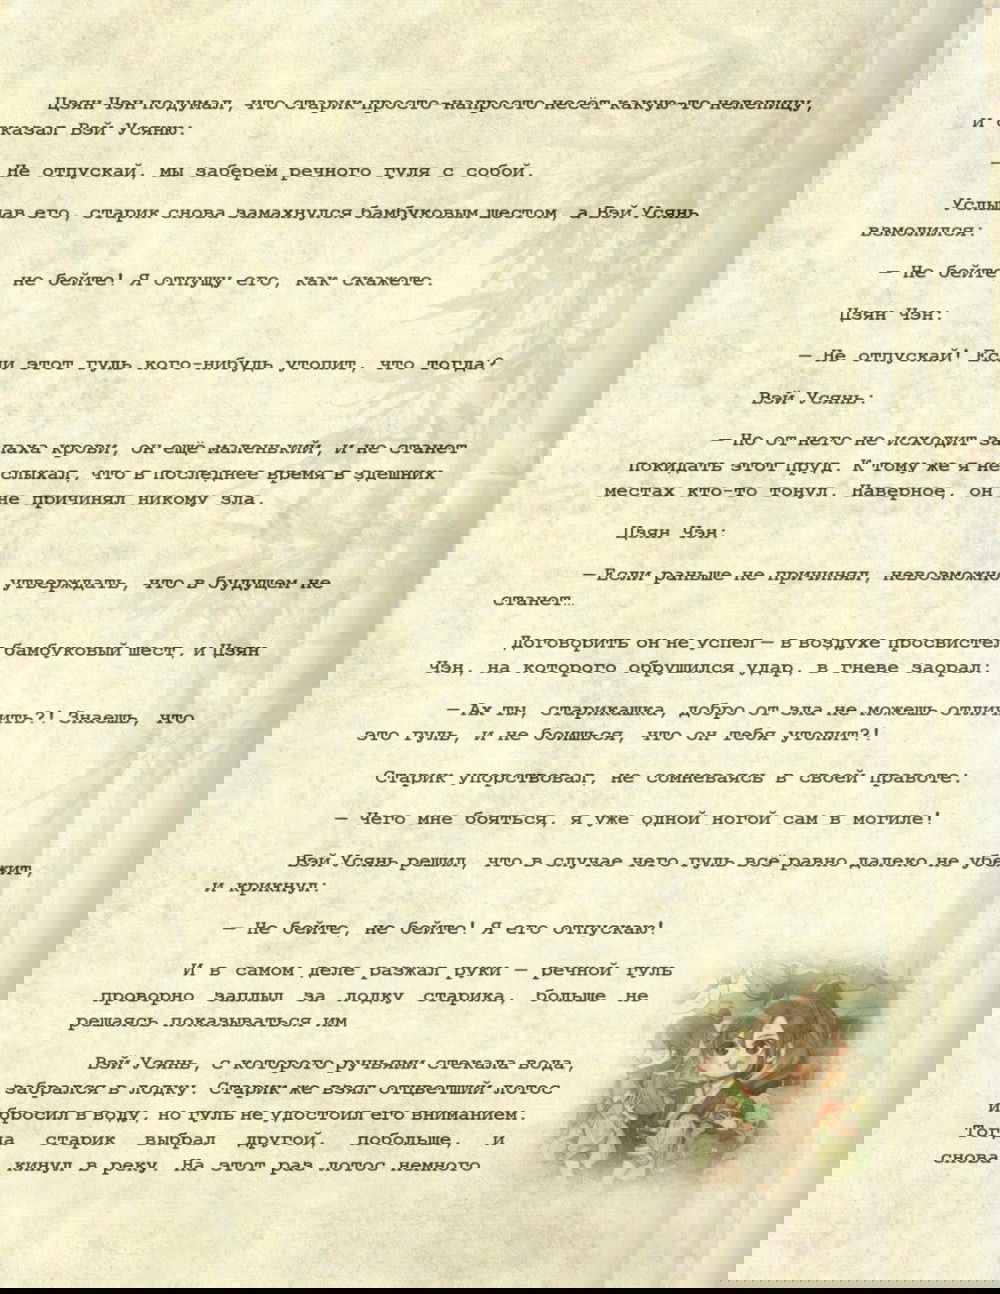 Цзян Чэн подумал, что старик просто-напросто несёт какую-то нелепицу,
и сказал Вэй Усяню:
— Не отпускай, мы заберём речного гуля с собой.
Услышав его, старик снова замахнулся бамбуковым шестом, а Вэй Усянь
взмолился:
— Не бейте, не бейте! Я отпущу его, как скажете.
Цзян Чэн:
— Не отпускай! Если этот гуль кого-нибудь утопит, что тогда?
Вэй Усянь:
—Но от него не исходит запаха крови, он ещё маленький, и не станет
покидать этот пруд. К тому же я не слыхал, что в последнее время в здешних
местах кто-то тонул. Наверное, он не причинял никому зла.
Цзян Чэн:
—Если раньше не причинял, невозможно утверждать, что в будущем не
станет…
Договорить он не успел — в воздухе просвистел бамбуковый шест, и Цзян
Чэн, на которого обрушился удар, в гневе заорал:
— Ах ты, старикашка, добро от зла не можешь отличить?! Знаешь, что
это гуль, и не боишься, что он тебя утопит?!
Старик упорствовал, не сомневаясь в своей правоте:
— Чего мне бояться, я уже одной ногой сам в могиле!
Вэй Усянь решил, что в случае чего гуль всё равно далеко не убежит,
и крикнул:
— Не бейте, не бейте! Я его отпускаю!
И в самом деле разжал руки — речной гуль
проворно заплыл за лодку старика, больше не
решаясь показываться им
Вэй Усянь, с которого ручьями стекала вода,
забрался в лодку. Старик же взял отцветший лотос
и бросил в воду, но гуль не удостоил его вниманием.
Тогда старик выбрал другой, побольше, и
снова кинул в реку. На этот раз лотос немного